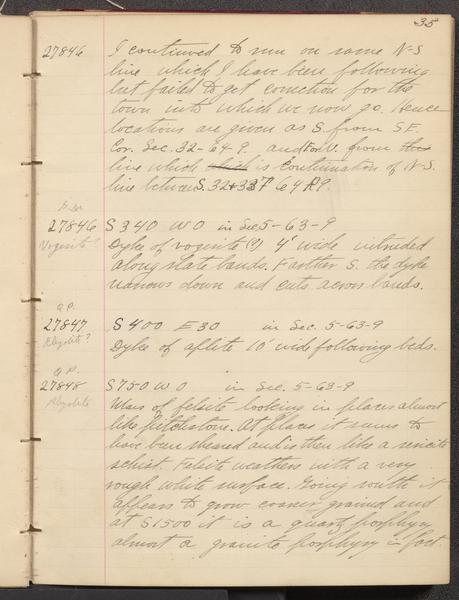 35
27846 I continued to run on same N-S
line which I have been following
but failed to get correction for the
town into which we now go. Hence
locations are given as S. from S.E.
Cor. Sec. 32-64-9. and E or W. from
line which is continuation of N-S.
line between S. 32+33 T 64 R 9.
27846 S 340 W 0 in Sec 5-63-9
Vogesite? Dyke of vogesite (?) 4' wide intruded
along slate bands. Farther S. the dyke
narrows down and cuts across bands.
Q.P.
27847 S 400 E 30 in Sec. 5-63-9
Rhyolite? Dyke of aplite 10' wide following beds.
Q.P.
27848 S 750 W 0 in Sec. 5-63-9
Rhyolite Mass of felsite looking in places almost
like pitchstone. At places it seems to
have been sheared and is then like a sericite
schist. Felsite weathers with a very
rough white surface. Going south it
appears to grow coarser grained and
at S1500 it is a quartz porphyry
almost a granite porphyry in fact.